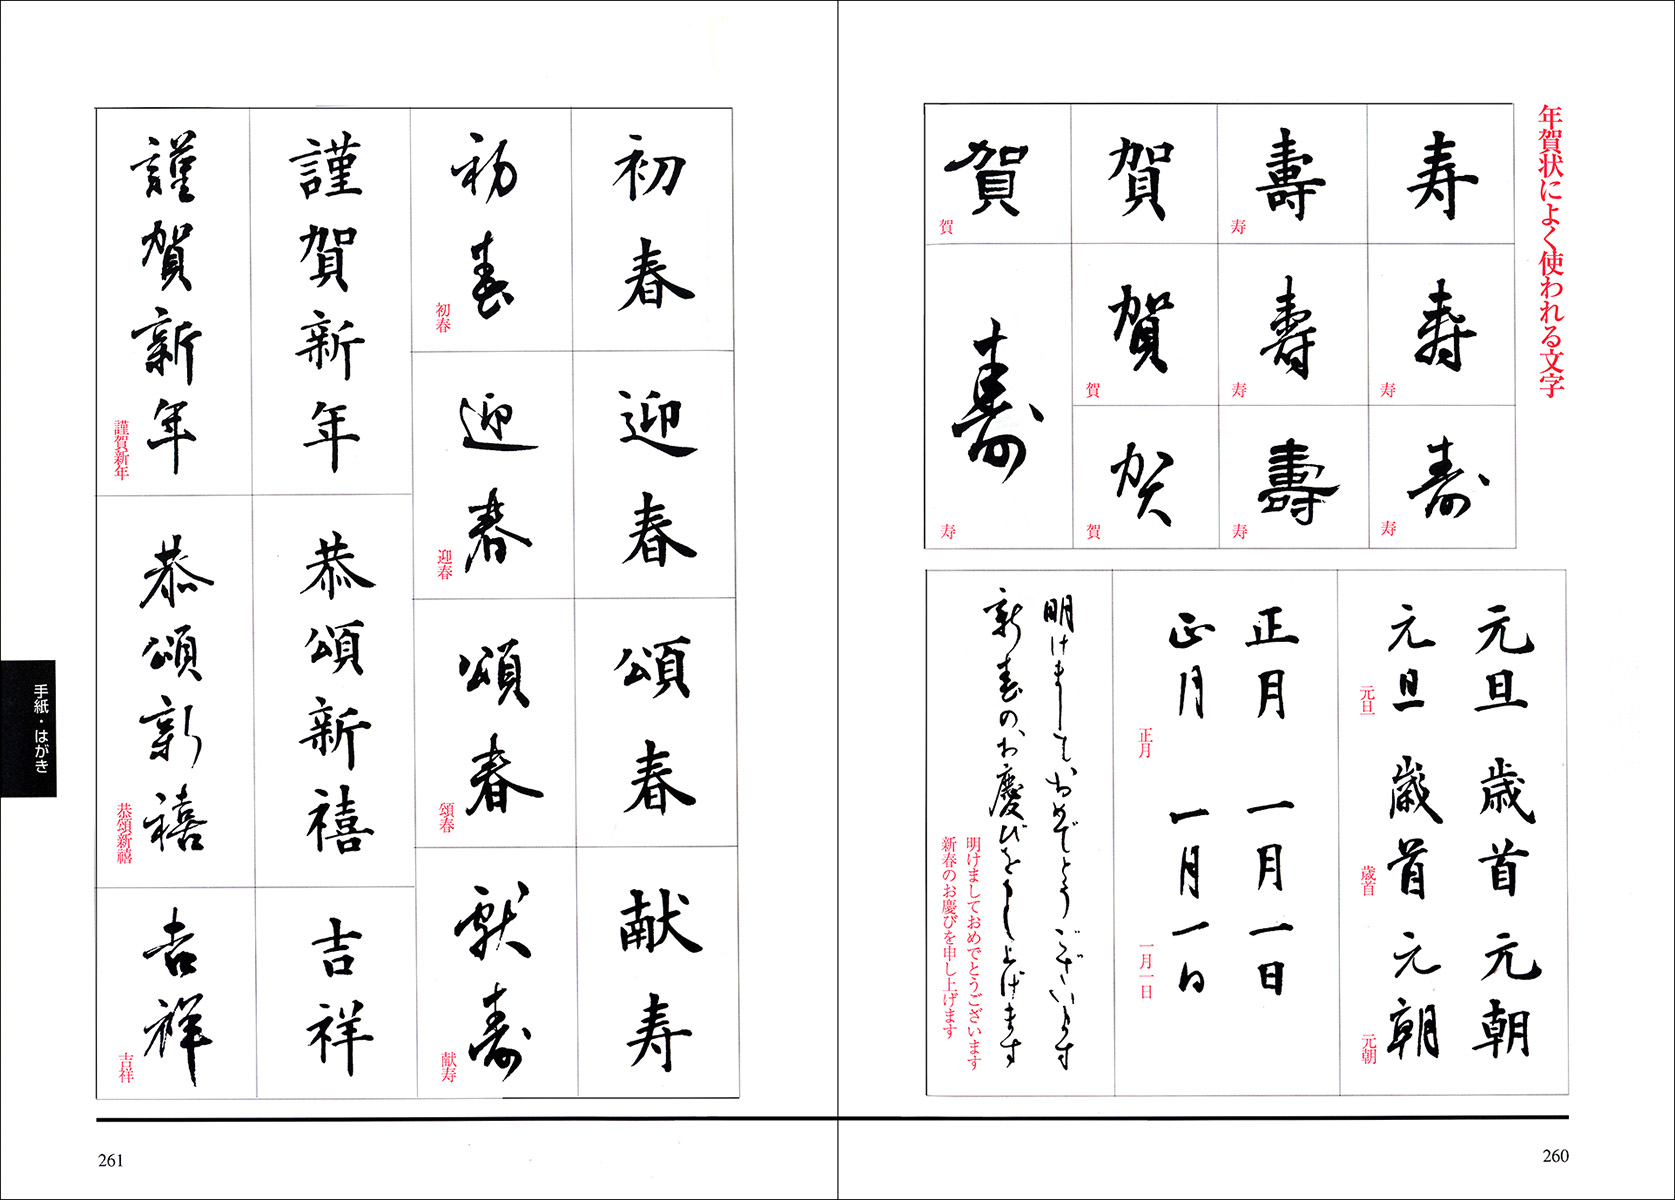 年賀状によく使われる文字
寿
寿
寿
寿
壽
寿
壽
寿
壽
寿
賀
賀
賀
賀
賀
賀
寿
寿
元旦
歳首
元朝
元旦
元旦
歳首
歳首
元朝
元朝
正月
一月一日
正月
正月
一月一日
一月一日
明けましておめでとうございます
新春のお慶びを申し上げます
明けましておめでとうございます
新春のお慶びを申し上げます
260
初春
初春
初春
迎春
迎春
迎春
頌春
頌春
頌春
献寿
献寿
献寿
謹賀新年
謹賀新年
謹賀新年
恭頌新禧
恭頌新禧
恭頌新禧
吉祥
吉祥
吉祥
手紙・はがき
261